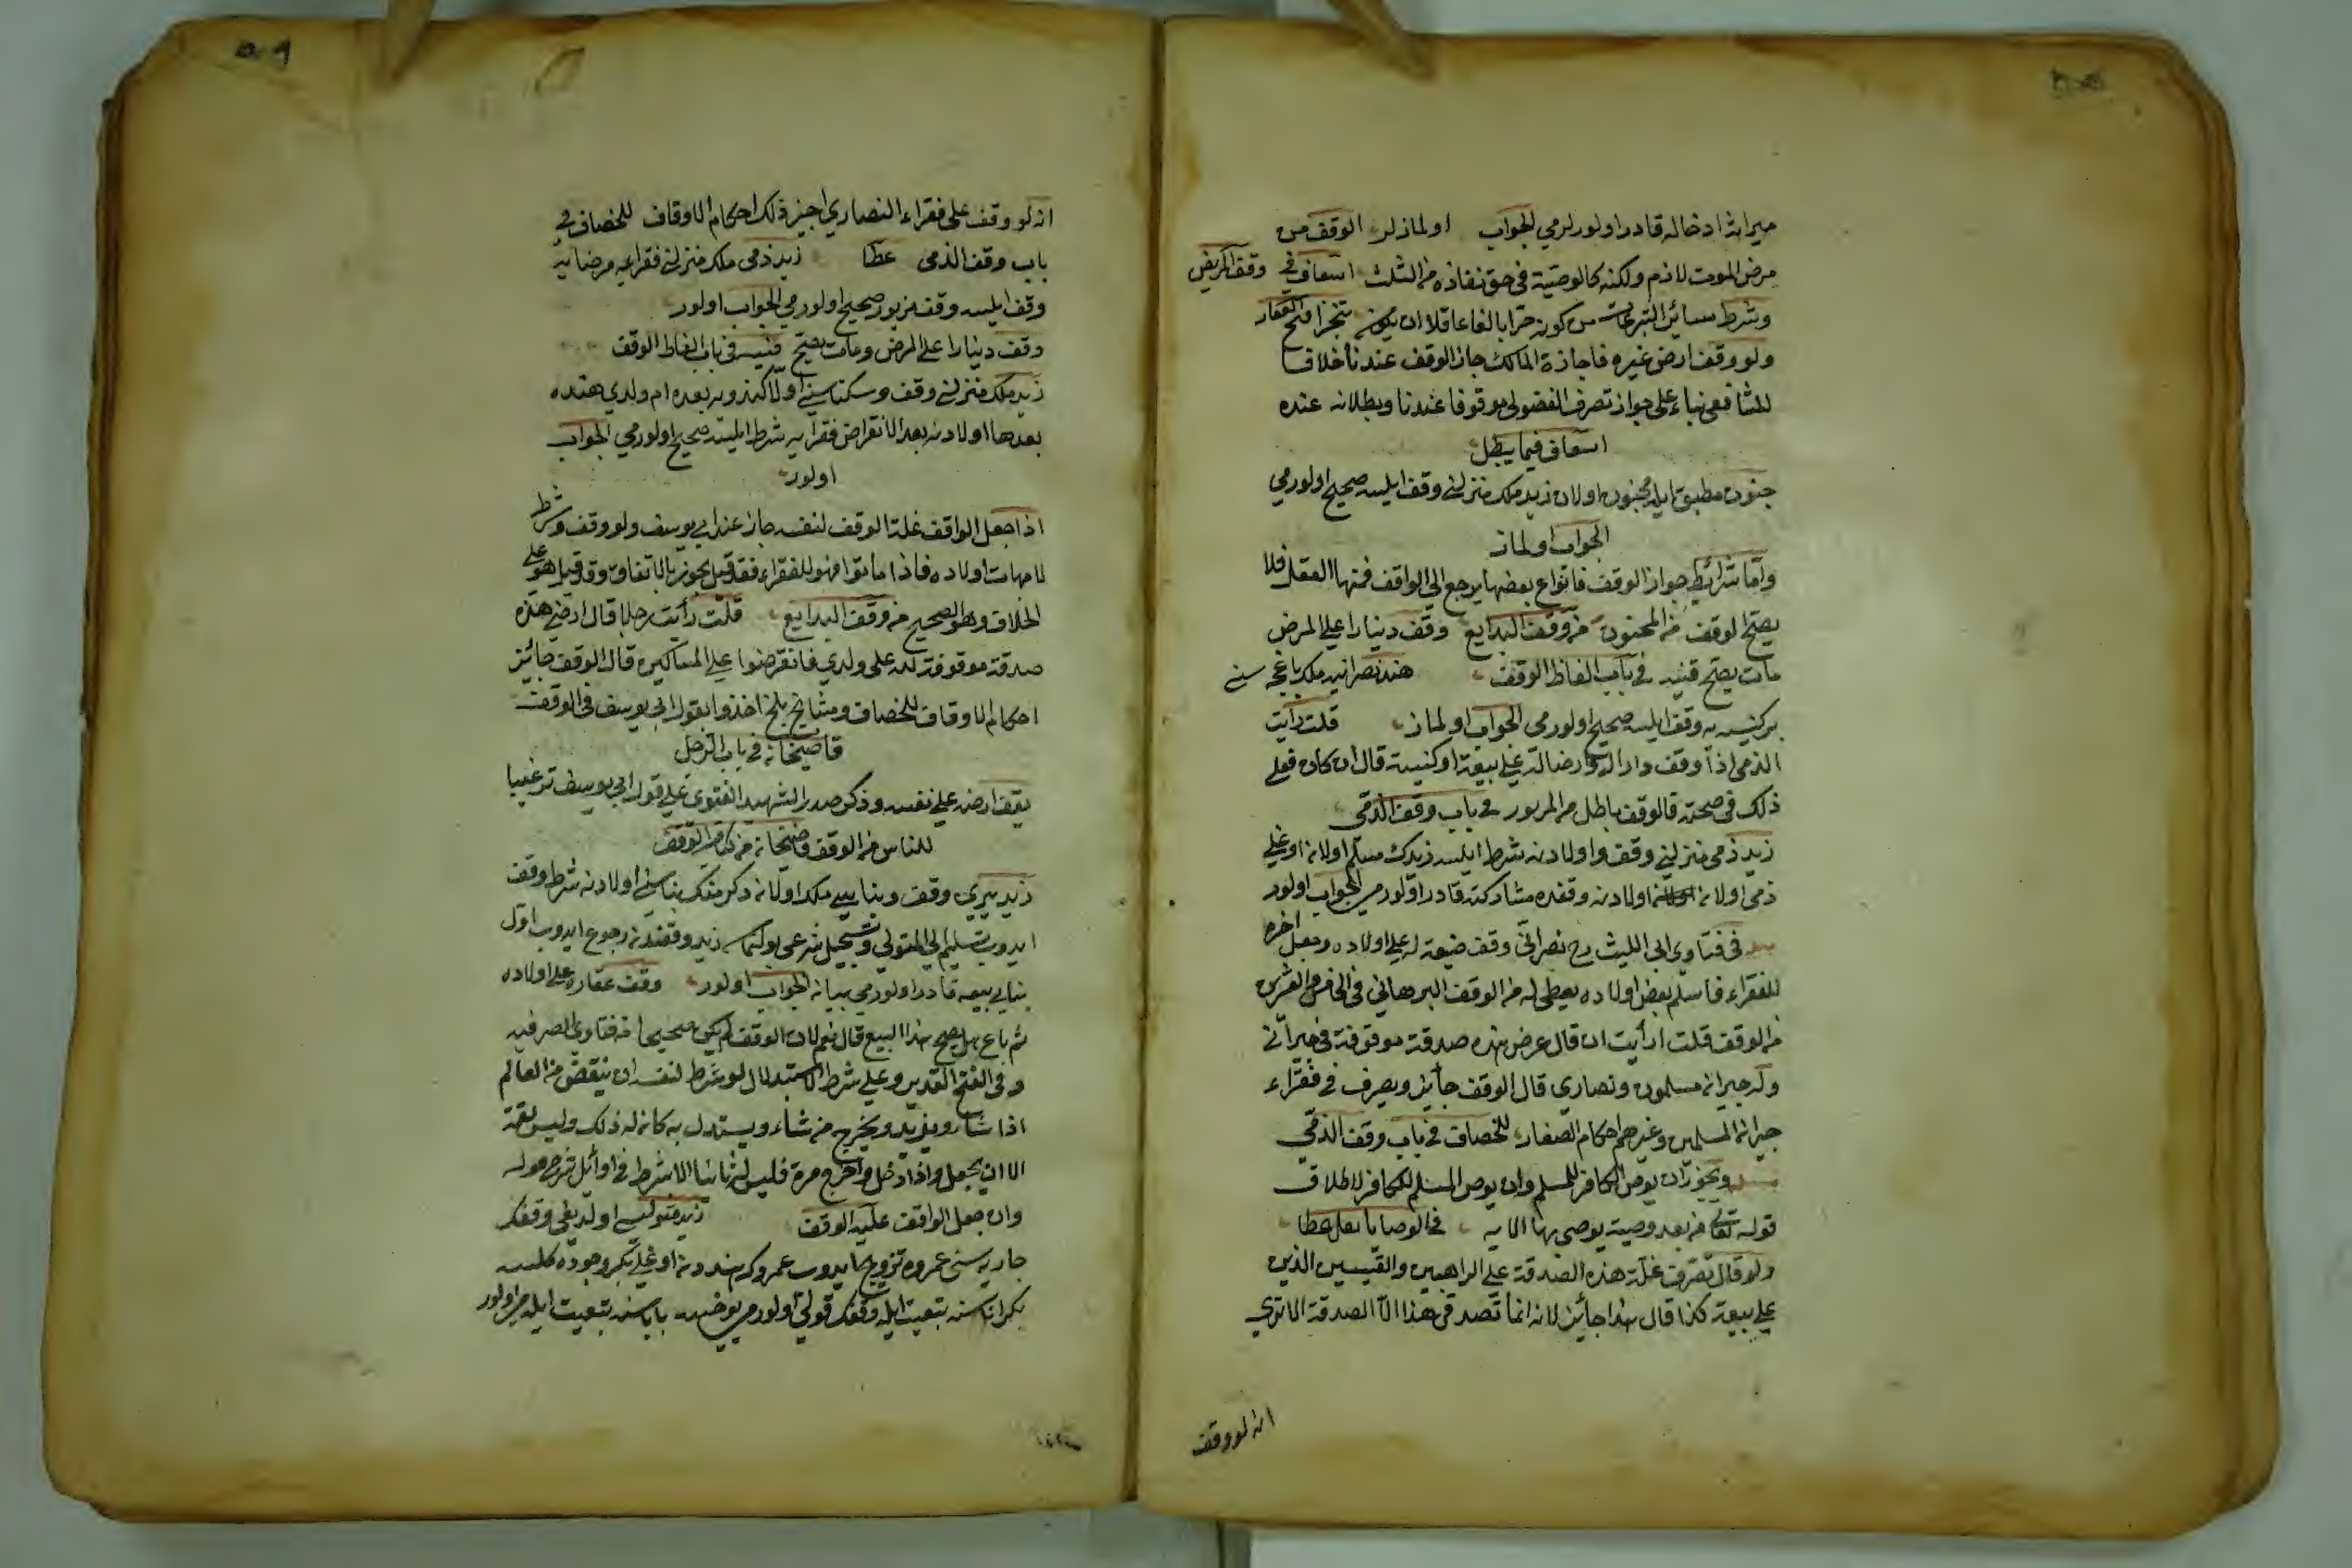 ميراثه ادخاله قادر اولور لرمي الجواب اولماز لر الوقف من
مرض الموت لازم ولكنه كالوصية فى حق نفاذه من الثلث اسعاف في وقف المريض
وشرط سائر التبرعات من كونه حرا بالغا عاقلا ان يكون منجزا فتح الغفار
ولو وقف ارض غيره فاجازة المالك جاز الوقف عندنا خلافا
للشافعي بناء على جواز تصرف الفضولي موقوفا عندنا وبطلانه عنده
اسعاف فيما يبطل
جنون مطبق ايله مجنون اولان زيد ملك منزلني وقف ايلسه صحيح اولورمي
الجواب اولماز
واما شرائط جواز الوقف فانواع بعضها يرجع الى الواقف فمنها العقل فلا
يصح الوقف من المجنون من وقف البدايع وقف دينارا على المرض
مات يصح قنيه في باب الفاظ الوقف هند نصرانيه ملك باغچه سني
بر كنيسه يه وقف ايلسه صحيح اولورمى الجواب اولماز قلت رأيت
الذمى اذا وقف دارا له او ارضا له على بيعة او كنيسة قال ان كان فعل
ذلك فى صحته فالوقف باطل من المزبور في باب وقف الذمى
زيد ذمى منزلني وقف واولادنه شرط ايلسه زيدك مسلم اولان اوغلي
ذمى اولان اولادنه وقفده مشاركته قادر اولورمي الجواب اولور
فى فتاوى ابى الليث رح نصراني وقف ضيعة له على اولاده وجعل اخره
للفقراء فاسلم بعض اولاده يعطى له من الوقف البرهاني فى الخامس والعشرين
من الوقف قلت ارأيت ان قال عرض هذه صدقة موقوفة فى جيراني
وله جيرانه مسلمون ونصارى قال الوقف جائز ويصرف فى فقراء
جيرانه المسلمين وغيرهم احكام الصغار للخصاف في باب وقف الذمي
ويجوز ان يوصى الكافر للمسلم وان يوصى المسلم للكافر لاطلاق
قوله تعالى من بعد وصية يوصى بها الايه فى الوصايا نقل عطا
ولو قال تصرف غلة هذه الصدقة على الراهبين والقسيسين الذين
على بيعة كذا قال هذا جائز لانه انما تصدق هذا الا الصدقة الا ترى
انه لو وقف
انه لو وقف على فقراء النصارى اجيز ذلك احكام الاوقاف للخصاف في
باب وقف الذمى عطا زيد ذمى ملك منزلني فقراء مرضايه
وقف ايلسه وقف مزبور صحيح اولورمي الجواب اولور
وقف دينارا على المرض ومات يصح قنيه فى باب الفاظ الوقف
زيد ملك منزلني وقف وسكناسني اولا كندويه بعده ام ولدي هنده
بعدها اولادنه بعد الانقراض فقرايه شرط ايلسه صحيح اولورمي الجواب
اولور
اذا جعل الواقف غلة الوقف لنفسه جاز عند ابي يوسف ولو وقف وشرط
لامهات اولاده فاذا ماتوا فهو للفقراء فقد قيل يجوز بالاتفاق وقد قيل هو على
الخلاف وهو الصحيح من وقف البدايع قلت رأيت رجلا قال ارضي هذه
صدقة موقوفة لله على ولدي فانقرضوا على المساكين قال الوقف جائز
احكام الاوقاف للخصاف ومشايخ بلخ اخذوا بقول ابى يوسف فى الوقف
قاضيخانه فى باب الرجل
يقف ارضه على نفسه وذكر صدر الشهيد الفتوى على قول ابى يوسف ترغيبا
للناس من الوقف قاضيخانه من كتاب الوقف
زيد يري وقف وبناسي ملك اولان دكرمنك بناسني اولادنه شرط وقف
ايدوب تسليم الى المتولي وتسجيل شرعى بولنماسه زيد وقفندن رجوع ايدوب اول
بنايي بيعه قادر اولورمي بيانه الجواب اولور وقف عقاره على اولاده
ثم باع هل يصح هذا البيع قال نعم لان الوقف لم يكن صحيحا من فتاوى الصرفيه
وفى الفتح القدير وعلى شرط الاستبدال لو شرط لنفسه ان ينقص من العالم
اذا شاء ويزيد ويخرج من شاء ويستبدل به كان له ذلك وليس لقيمه
الا ان يجعل واذا ادخل واخرج مرة فليس له ثانيا الا بشرط فى اوائل شرح
وان جعل الواقف عليه الوقف زيد متوليسي اولديغى وقفك
جاريه سنى عمروه تزويج ايدوب عمروك هنددن اوغلي بكر وجوده كلسه
بكر اناسنه بتبعيت ايله وقفك قولي اولورمي يوخسه باباسنه بتبعيت ايله حر اولور